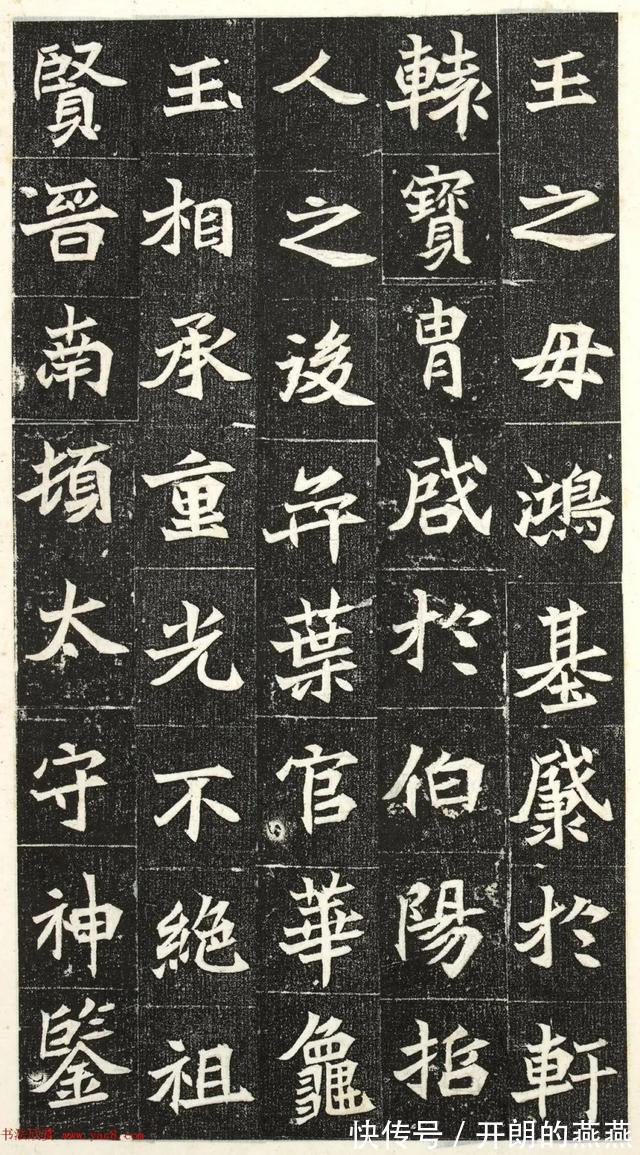 王之母鴻基於軒
轅寶胄啓於伯陽哲
人之後弈葉官華龜
玉相承重光不絶祖
賢晉南頓太守神鑒
书法欣赏 www.yac8.com
快传号 / 开朗的燕燕